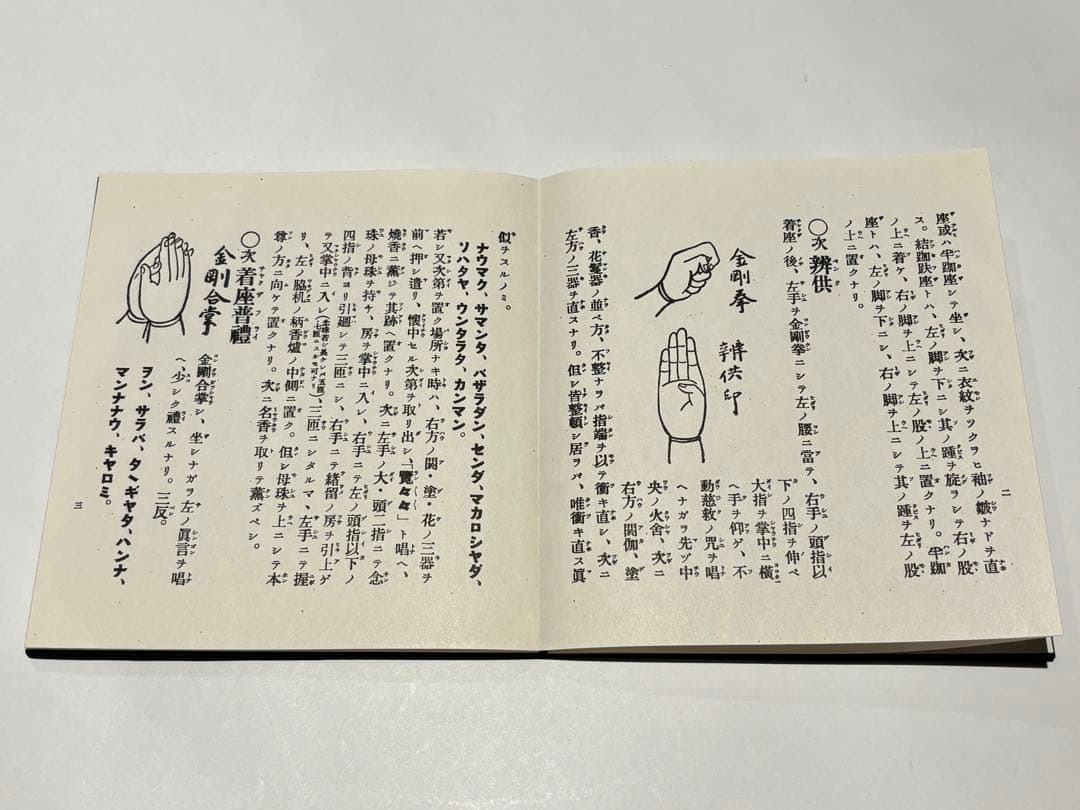 二
座或ハ半跏座シテ坐シ、次ニ衣紋ヲツクロヒ袖ノ皺ナドヲ直
ス。結跏趺座トハ、左ノ脚ヲ下ニシ其ノ踵ヲ旋ラシテ右ノ股
ノ上ニ着ケ、右ノ脚ヲ上ニシテ左ノ股ノ上ニ置クナリ。半跏
座トハ、左ノ脚ヲ下ニシ、右ノ脚ヲ上ニシテ其ノ踵ヲ左ノ股
ノ上ニ置クナリ。
〇次辨供
着座ノ後、左手ヲ金剛拳ニシテ左ノ腰ニ當テ、右手ノ頭指以
金剛拳
辨供印
下ノ四指ヲ伸ベ
大指ヲ掌中ニ横
ヘ手ヲ仰ゲ、不
動慈救ノ咒ヲ唱
ヘナガラ先ヅ中
央ノ火舍、次ニ
右方ノ閼伽、塗
香、花鬘器ノ並ベ方、不整ナラバ指端ヲ以テ衝キ直シ、次ニ
左方ノ三器ヲ直スナリ。但シ皆整頓シ居ラバ、唯衝キ直ス眞
似ヲスルノミ。
ナウマク、サマンタ、バザラダン、センダ、マカロシヤダ、
ソハタヤ、ウンタラタ、カンマン。
若シ又次第ヲ置ク場所ナキ時ハ、右方ノ閼・塗・花ノ三器ヲ
前ヘ押シ遣リ、懷中セル次第ヲ取リ出シ、「覽々々」ト唱ヘ、
燒香ニ薰ジテ其跡ヘ置クナリ。次ニ左手ノ大・頭二指ニテ念
珠ノ母珠ヲ持チ、房ヲ掌中ニ入レ、右手ニテ左ノ頭指以下ノ
四指ノ背ヨリ引廻シテ三匝ニシ、右手ニテ緒留ノ房ヲ引上ゲ
テ又掌中ニ入レ(念珠若シ長ケレバ五匝七匝ニスルモ可ナリ)、三匝ニシタルマヽ左手ニテ握
リ、左ノ脇机ノ柄香爐ノ中側ニ置ク。但シ母珠ヲ上ニシテ本
尊ノ方ニ向ケテ置クナリ。次ニ名香ヲ取リテ薰ズベシ。
〇次着座普禮
金剛合掌
金剛合掌シ、坐シナガラ左ノ眞言ヲ唱
ヘ、少シク禮スルナリ。三反。
ヲン、サラバ、タヽギヤタ、ハンナ、
マンナナウ、キヤロミ。
三